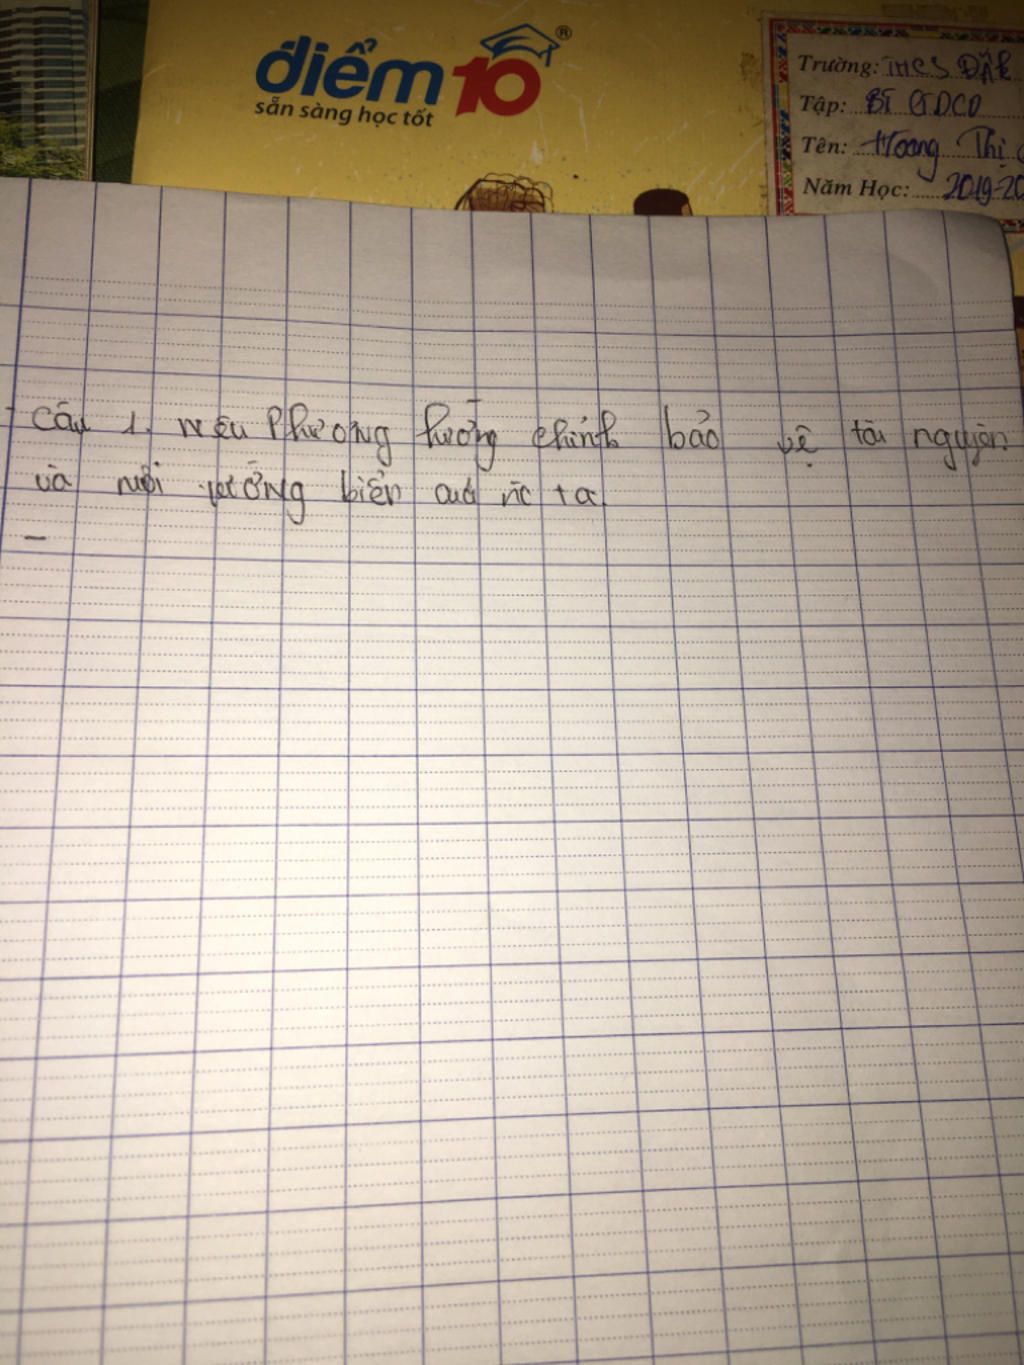 điểm10®
sẵn sàng học tốt
Trường: THCS ĐẮK
Tập: BT GDCD
Tên: Hoang Thị
Năm Học: 2019-20
Câu 1. nêu Phương hướng chính bảo vệ tài nguyên
và môi trường biển của nc ta
-